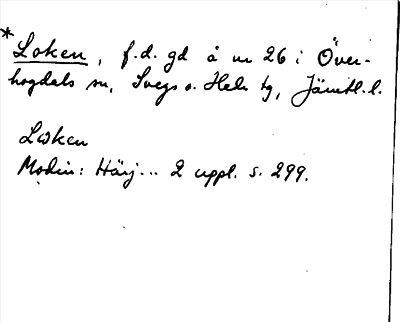 *Loken, f.d. gd å nr 26 i Över-
hogdals sn, Svegs o. Hede tg, Jämtl. l.
Låken
Modin: Härj... 2 uppl. s. 299.